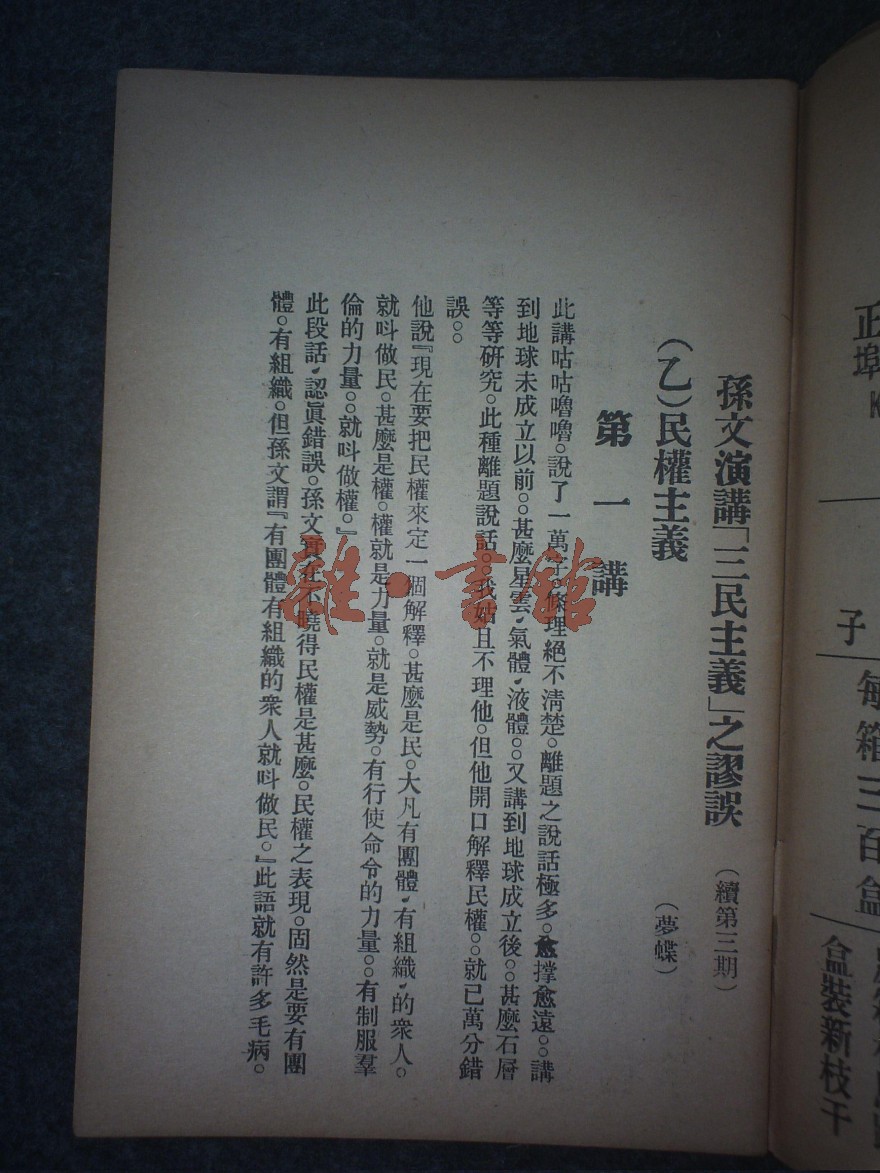 孫文演講「三民主義」之謬誤（續第三期）
（乙）民權主義（夢蝶）
第一講
此講咕咕嚕嚕。說了一萬字。條理絕不清楚。離題之說話極多。愈撑愈遠。。講
到地球未成立以前。。甚麼星雲，氣體，液體。。又講到地球成立後。。甚麼石層
等等研究。此種離題說話。。我姑且不理他。但他開口解釋民權。。就已萬分錯
誤。。
他說『現在要把民權來定一個解釋。甚麼是民。大凡有團體，有組織，的衆人。
就呌做民。甚麼是權。權就是力量。就是威勢。有行使命令的力量。。有制服羣
倫的力量。。就呌做權。』
此段話，認眞錯誤。孫文實在不曉得民權是甚麼。民權之表現。固然是要有團
體。有組織。但孫文謂『有團體有組織的衆人就呌做民。』此語就有許多毛病。
雜·書館
正埠
子
每箱三百盒
盒裝新枝干